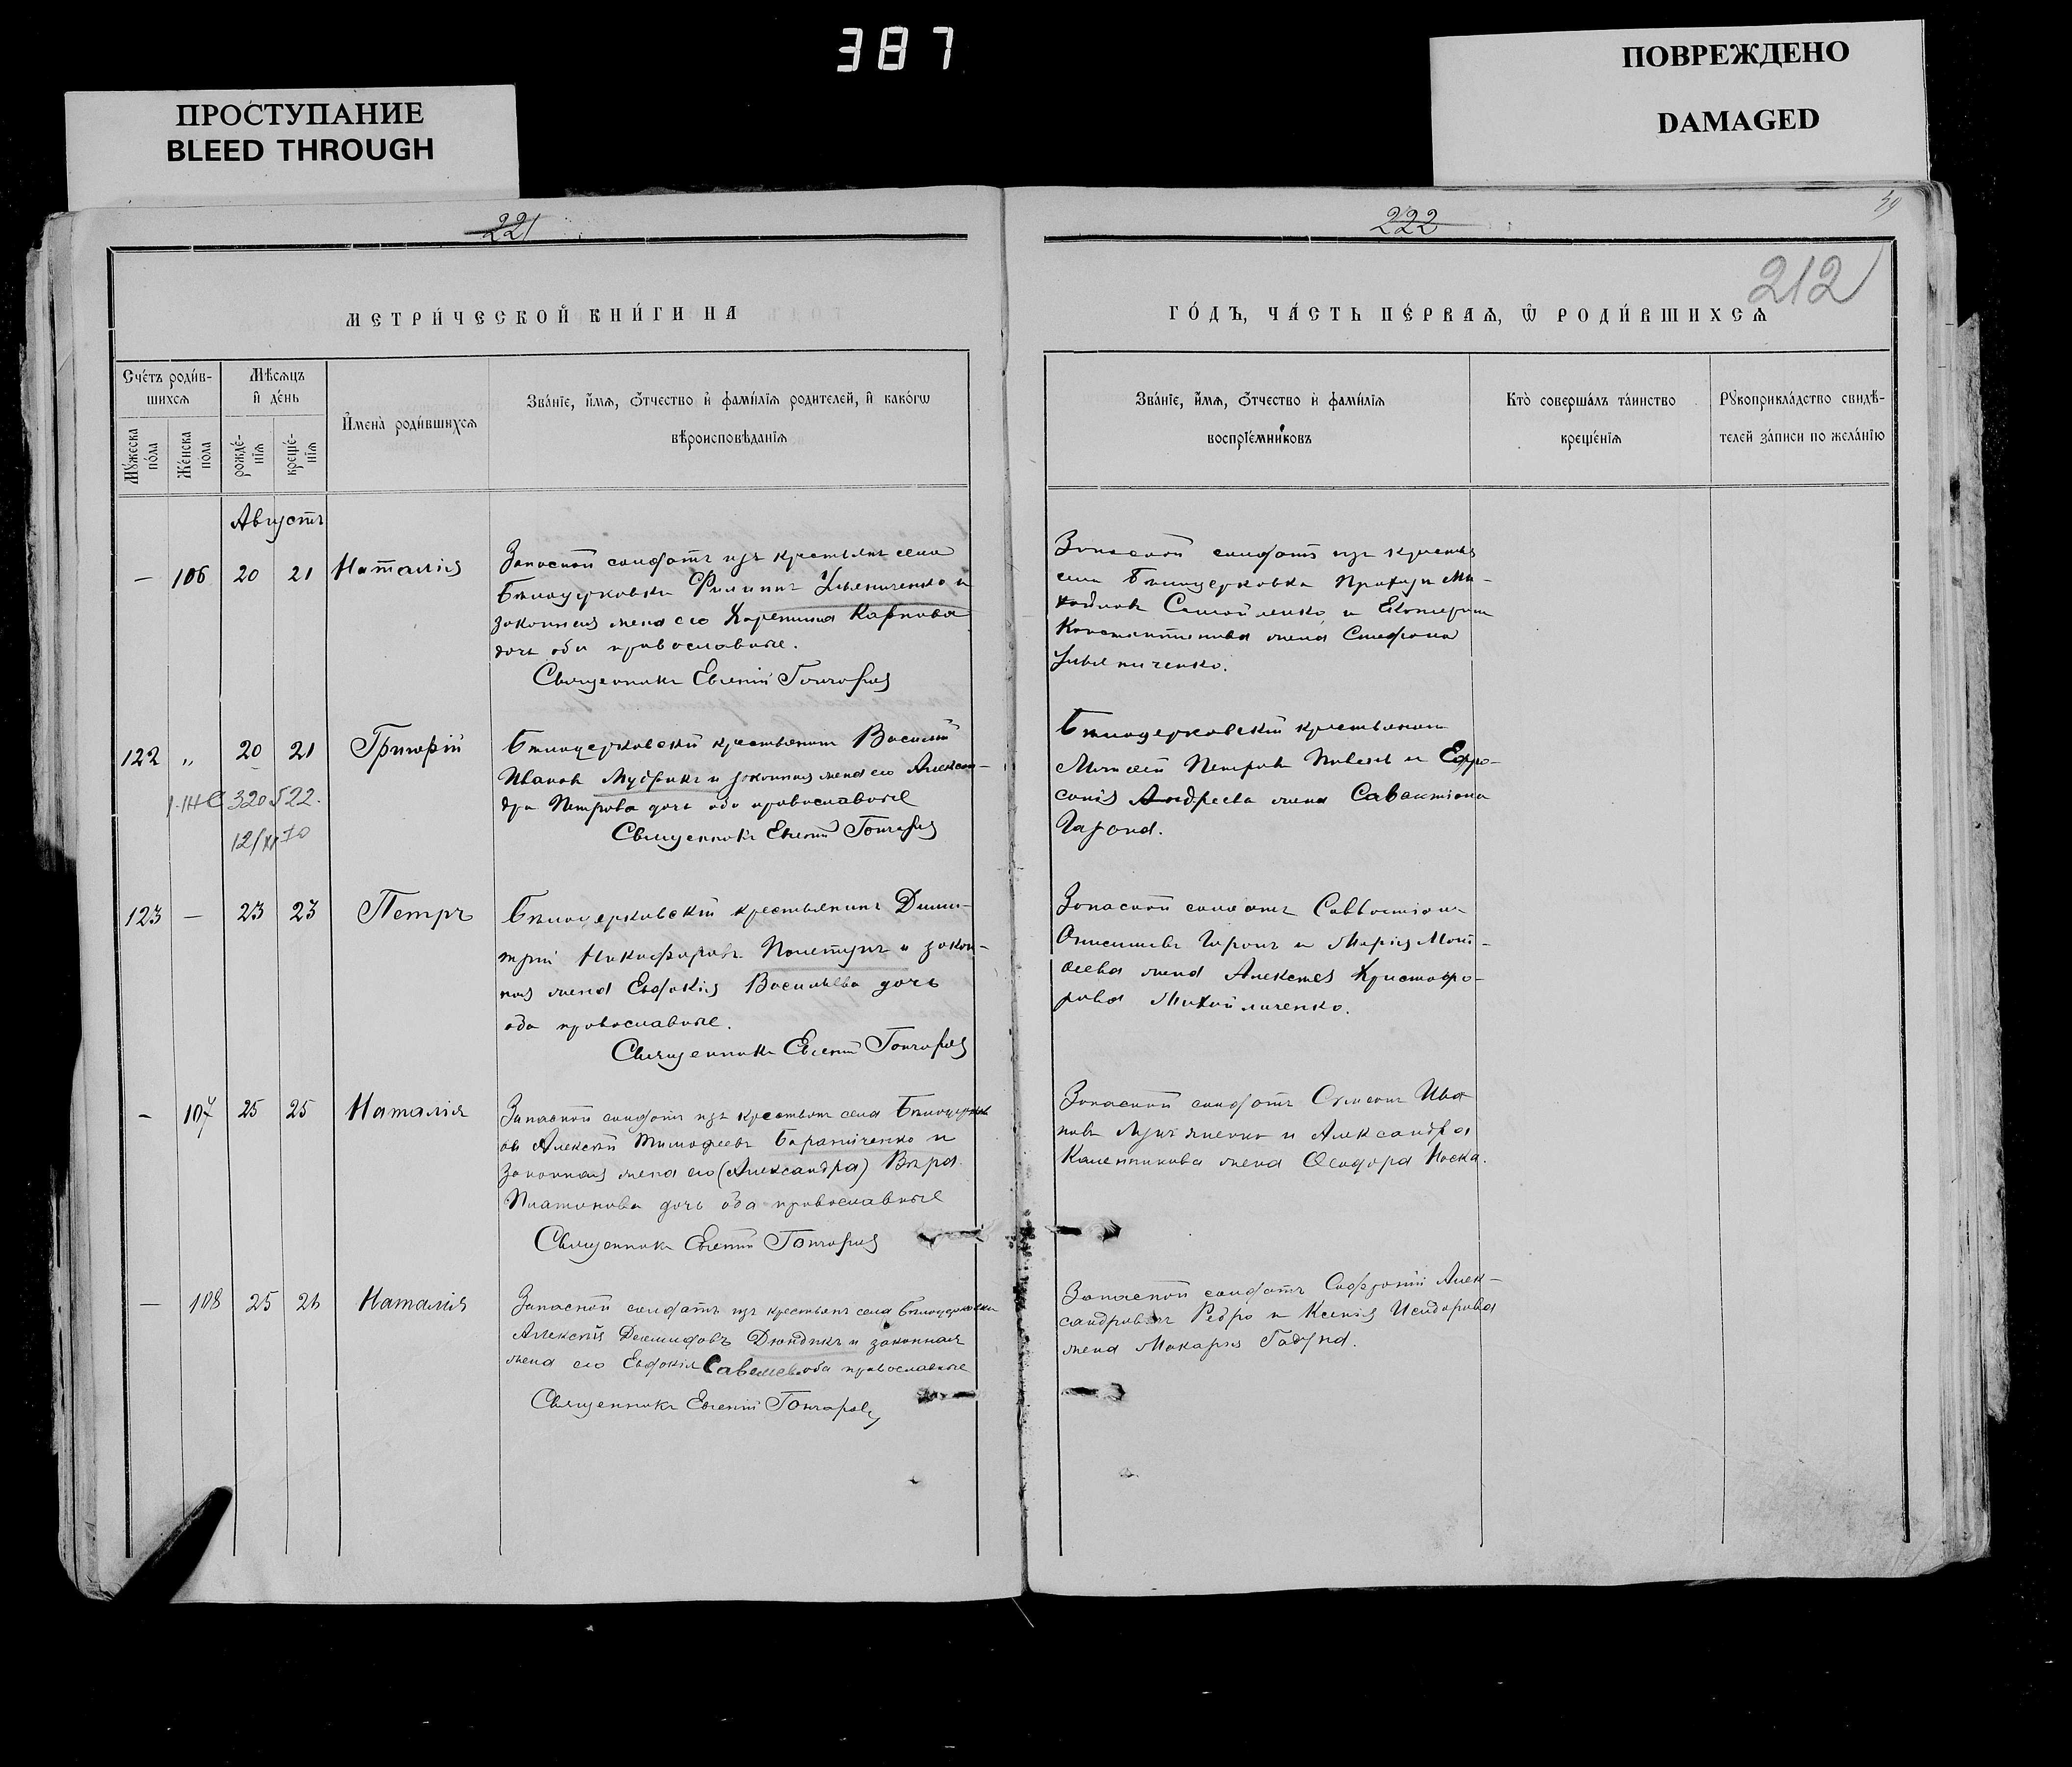 387
ПРОСТУПАНИЕ
BLEED THROUGH
ПОВРЕЖДЕНО
DAMAGED
221
222
212
МЕТРИ́ЧЕСКОЙ КНИ́ГИ НА
ГО́ДЪ, ЧА́СТЬ ПЕ́РВАѦ, Ѿ РОДИ́ВШИХСѦ
Сче́тъ роди́в-
шихсѧ
Мꙋ́жеска по́ла
Же́нска пола
Мѣ́сѧцъ и де́нь
рожде́-нїѧ
креще́-нїѧ
И҆мена̀ роди́вшихсѧ
Зва́нїе, и҆́мѧ, ѻ҆́тчество и҆ фами́лїѧ родителей, и҆ како́гѡ
вѣроисповѣ́данїѧ
Зва́нїе, и҆́мѧ, ѻ҆́тчество и҆ фами́лїѧ
воспрїе́мниковъ
Кто̀ соверша́лъ та́инство
креще́нїѧ
Рꙋкоприкла́дство свидѣ́-
телей за́писи по жела́нїю
Августъ
— 106 20 21 Наталія
Запасной солдатъ изъ крестьянъ села
Бѣлоцерковки Филиппъ Ульяниченко и
законная жена его Харитина Карпова
дочь оба православные.
Священникъ Евгеній Гончаровъ
Запасной солдатъ изъ крестья
села Бѣлоцерковка
Самойленко и Екатерина
Константинова жена Стефана
Ульяниченко.
122 „ 20 21 Григорій
320522.
Бѣлоцерковскій крестьянинъ Василій
Ивановъ Мудрикъ и законная жена его Алексан-
дра Петрова дочь оба православные
Священникъ Евгеній Гончаровъ
Бѣлоцерковскій крестьянинъ
Петровъ и Ефро-
синія Андреева жена Савактіона
123 — 23 23 Петръ
Бѣлоцерковскій крестьянинъ Дими-
трій Никифоровъ и закон-
ная жена Евдокія Васильева дочь
оба православные.
Священникъ Евгеній Гончаровъ
Запасной солдатъ
и Марія Мат-
ѳеева жена Алексѣя Христофо-
рова Михайличенко.
— 107 25 25 Наталія
Запасной солдатъ изъ крестьянъ села Бѣлоцерков
ки Алексѣй Тимофеевъ Баранниченко и
законная жена его (Александра) Вѣра
Платонова дочь оба православные
Священникъ Евгеній Гончаровъ
Запасной солдатъ Симеонъ Ива
новъ и Александра
Каленникова жена Ѳеодора Носка.
— 108 25 26 Наталія
Запасной солдатъ изъ крестьянъ села Бѣлоцерковки
Алексѣй Дюндикъ и законная
жена его Евдокія Савелієва оба православные
Священникъ Евгеній Гончаровъ
Запасной солдатъ Софроній Алек-
сандровичъ Редро и Ксенія Исидорова
жена Макарія